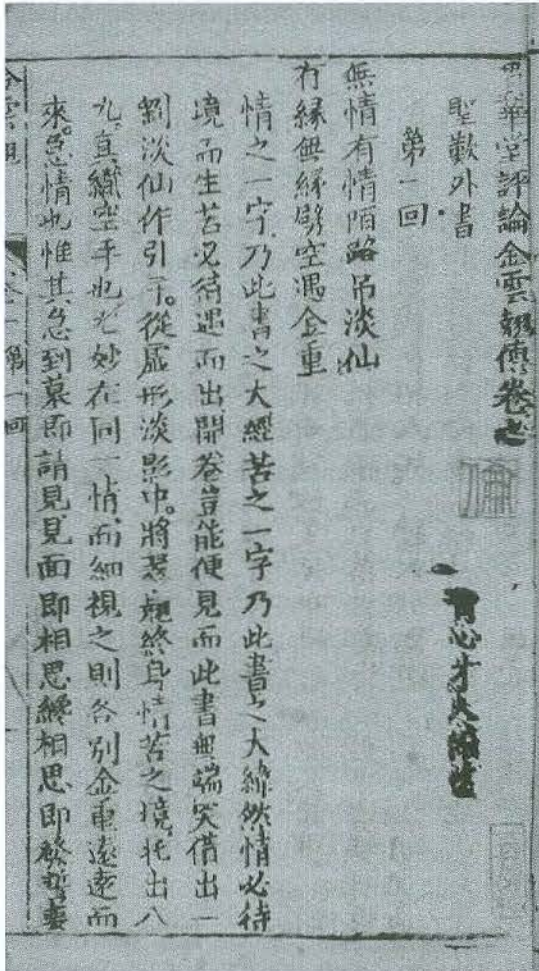 貫華堂評論金雲翹傳卷之
聖歎外書
青心才人編次
第一回
無情有情陌路吊淡仙
有緣無緣劈空遇金重
情之一字乃此書之大經苦之一字乃此書之大緯然情必待
境而生苦必待遇而出開卷豈能便見而此書無端突借出一
劉淡仙作引子。從虛形淡影中。將翠翹終身情苦之境托出八
九真纖空手也尤妙在同一情而細視之則各別金重遠遠而
來。急情也惟其急到墓即請見見面即相思纔相思即發誓要
金雲翹 卷一 第一回